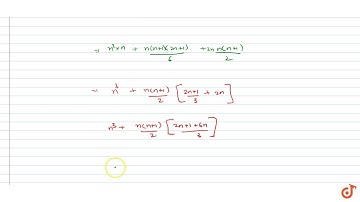 ∴ n²×n + n(n+1)(2n+1)/6 + 2n n(n+1)/2
∴ n³ + n(n+1)/2 [ 2n+1/3 + 2n ]
n³ + n(n+1)/2 [ 2n+1+6n/3 ]